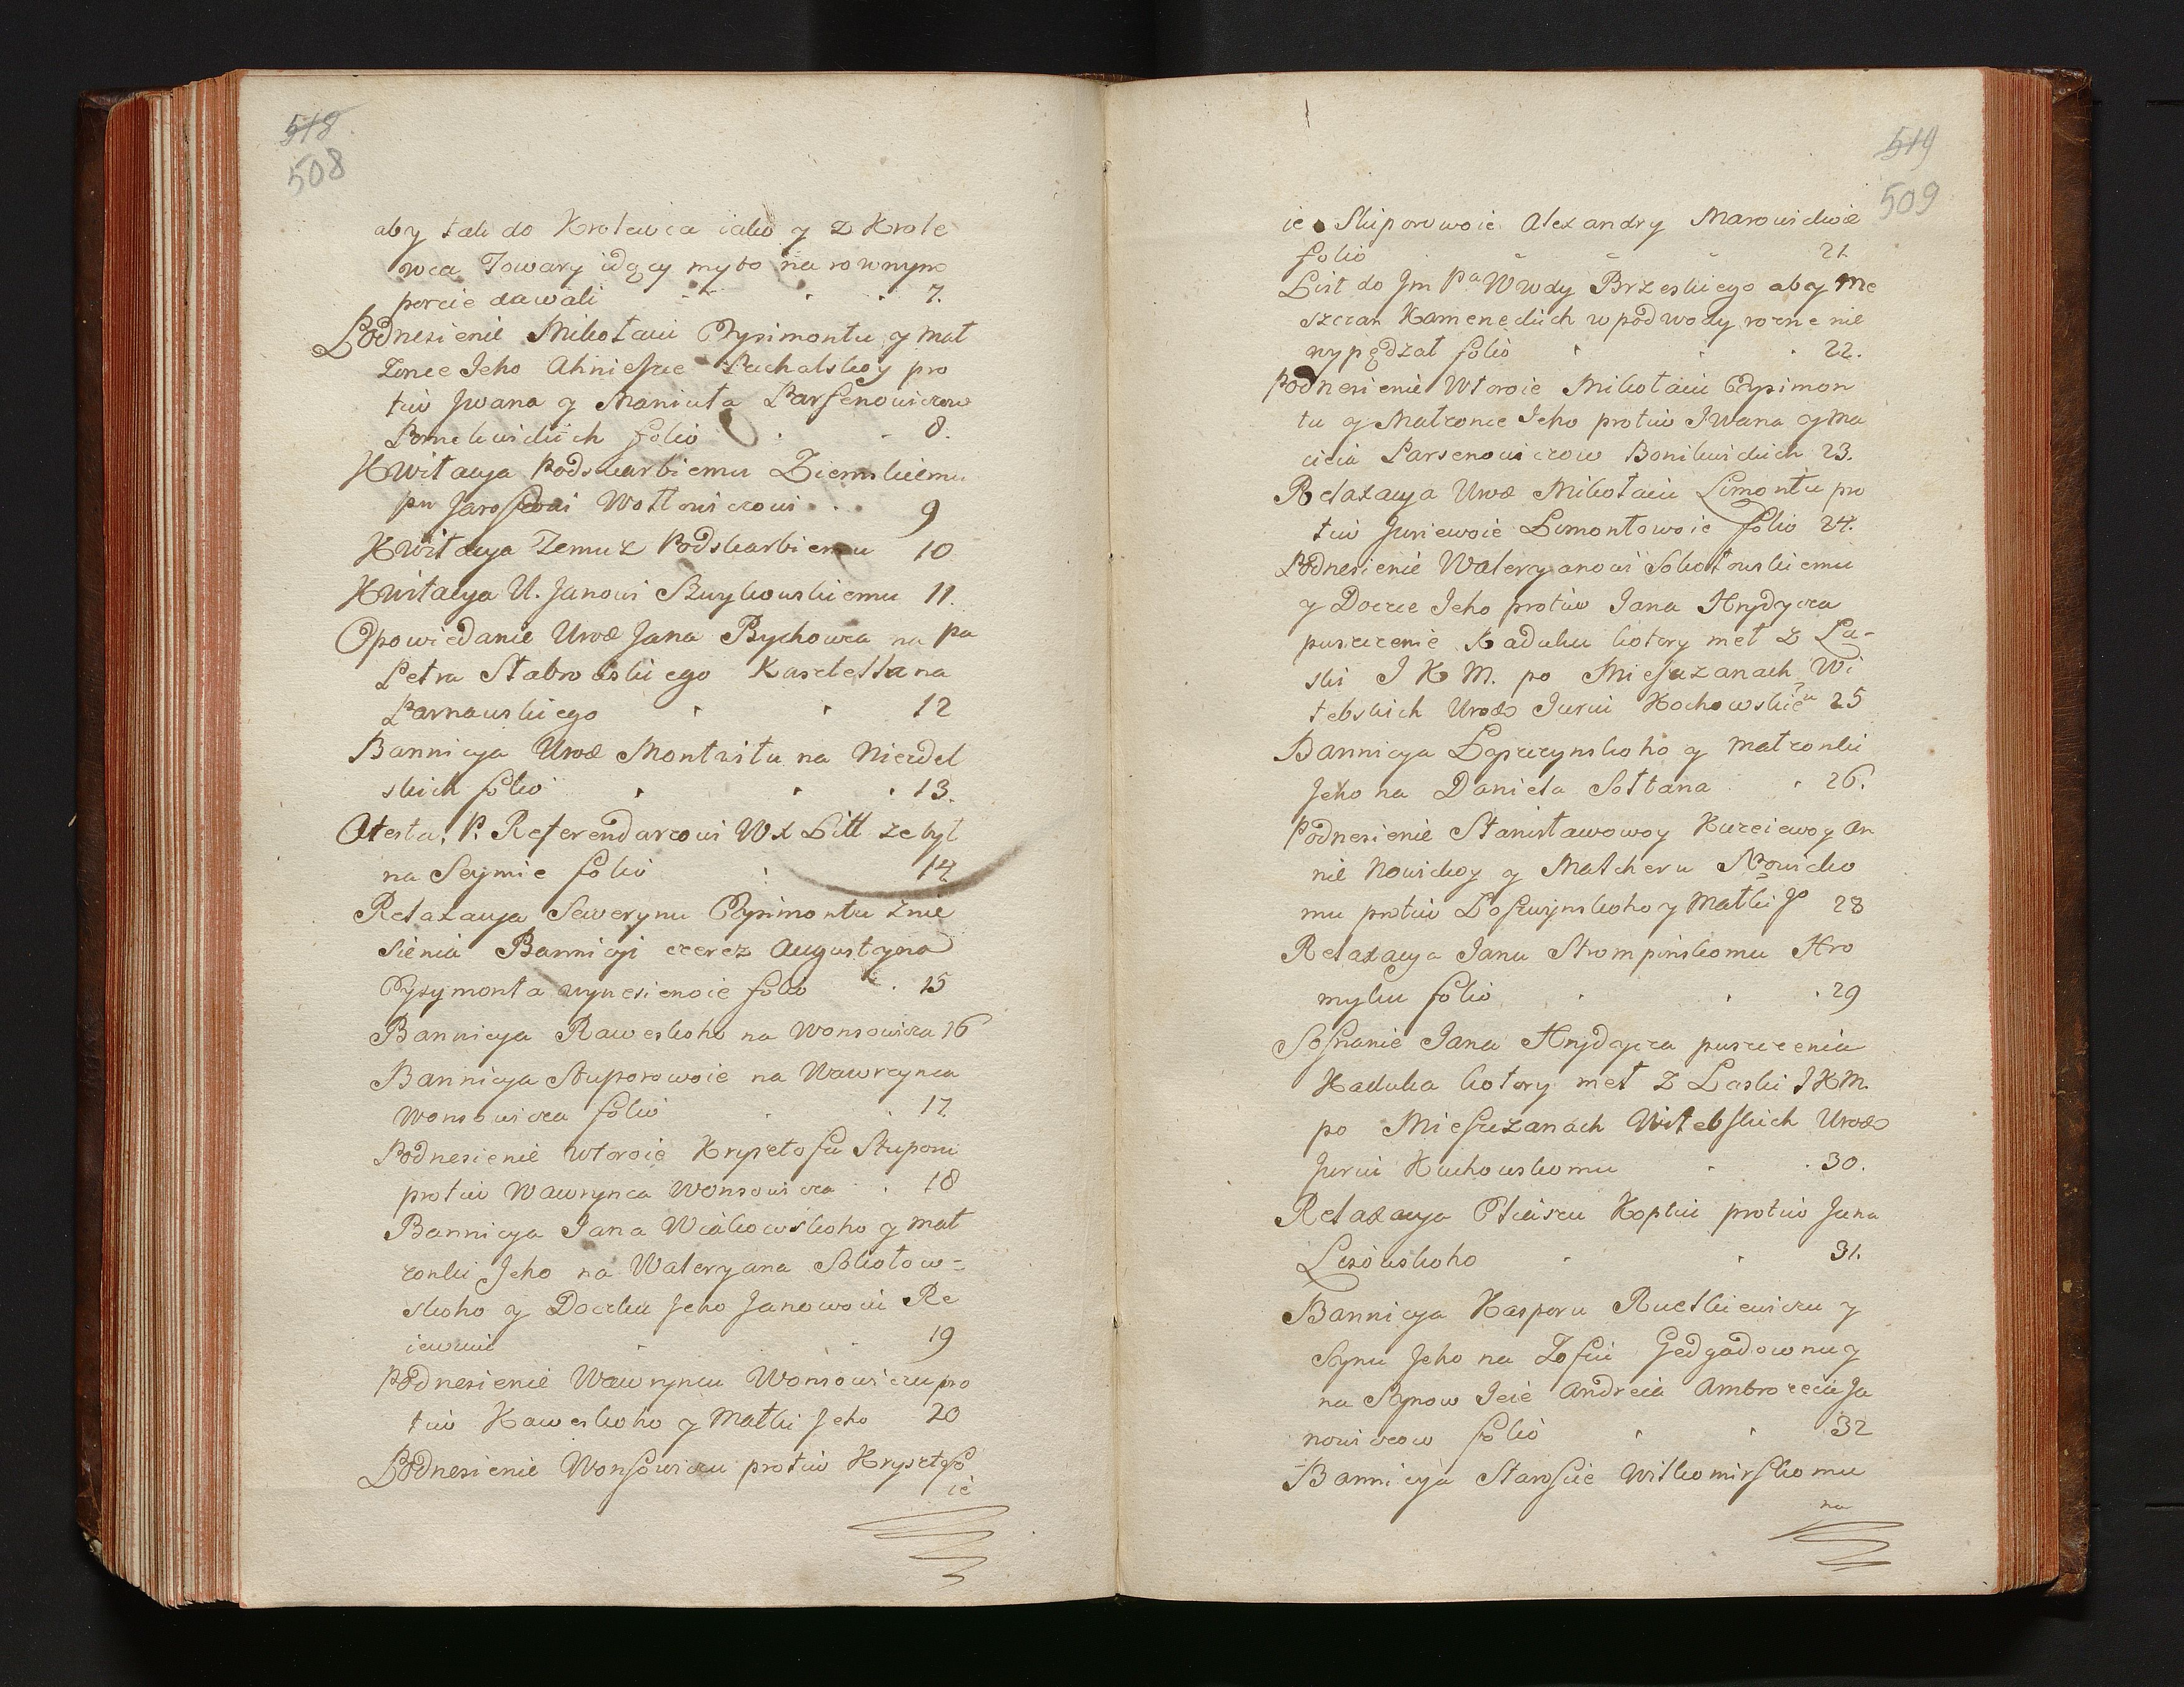 518
508
aby tak do Krolewca iako y z Krole
wca Towary idący myto na rownym
porcie dawali 7.
Podnesienie Mikołaiu Pzysimontu y mał
żonce Jeho Ahnieszce Puchalskoy pro
tiw Jwana y Maniuta Parfenowiczow
folio 8.
Kwitacya Podskarbiemu Ziemskiemu
pu Jarosłowi Wołłowiczowi 9
Kwitacya Temuz Podskarbiemu 10
Kwitacya U. Janowi Bzuykowskiemu 11.
Opowiedanie Urod Jana Bychowca na pa
Petra Stabrowskiego Kasztellana
Parnawskiego 12
Bannicya Urod Montwitu na Niezdel
skich folio 13.
Atesta: P. Referendarzowi W X Litt ze był
na Seymie folio 14
Relaxacya Sewerynu Pzysimontu znie
sienia Bannicyi czerez Augustyna
Pzysymonta wynesienoie folio 15
Bannicya Raweskoho na Wonsowicza 16
Bannicya Stuporowoie na Wawrzynca
Wonsowicza folio 17
Podnesienie wtoroie Krysztofu Stuporu
protiw Wawrynca Wonsowicza 18
Bannicya Jana Wiakowskoho y mał
zonki Jeho na Waleryana Sokołow-
skoho y Doczku Jeho Janowoiu Re
iewuiu 19
Podnesienie Wawryncu Wonsowiczu pro
tiw Kaweskoho y Matki Jeho 20
Podnesienie Wonsowiczu protiw Krysztofo
ie
519
509
ie Stuporowoie Alexandry Narowickoie
folio 21
List do Jm Pa Wwdy Brzeskiego aby me
szczan Kameneckich w podwody rozne nie
wypędzał folio 22.
Podnesienie Wtoroie Mikołaiu Pzysimon
tu y Małzonce Jeho protiw Jwana y Ma
cieia Parsenowiczow Bonikwickich 23.
Relaxacya Urod Mikołaiu Limontu pro
tiw Juriewoie Limontowoie folio 24.
Podnesienie Waleryanowi Sokołowskiemu
y Doczce Jeho protiw Jana Hrydycza
puszczenie Kaduku kotory meł z Ła-
ski J K M. po Mieszczanach Wi
tebskich Urodo Juriu Kochowskieu 25
Bannicya Łopuczynskoho y małzonki
Jeho na Danieła Sołtana 26.
Podnesienie Stanisławowoy Kurciewoy An
nie Nowickoy y Malcheru Nowicko
mu protiw Łoszczynskoho y Matki Jo 28
Relaxacya Janu Strompinskomu Hro
myku folio 29
Soznanie Jana Hrydycza puszczenia
Kaduka kotory meł z Łaski J K M.
po Mieszczanach Witebskich Urodo
Juriu Kuchowskomu 30.
Relaxacya Ptaiszu Kopciu protiw Jana
Lisowskoho 31.
Bannicya Kasporu Rustkiewiczu y
Synu Jeho na Zofiu Gedgadownu y
na Synow Jeie Andreia Ambrozeia Ja
nowiczow folio 32
Bannicya Staroscie Wilkomirskomu
na